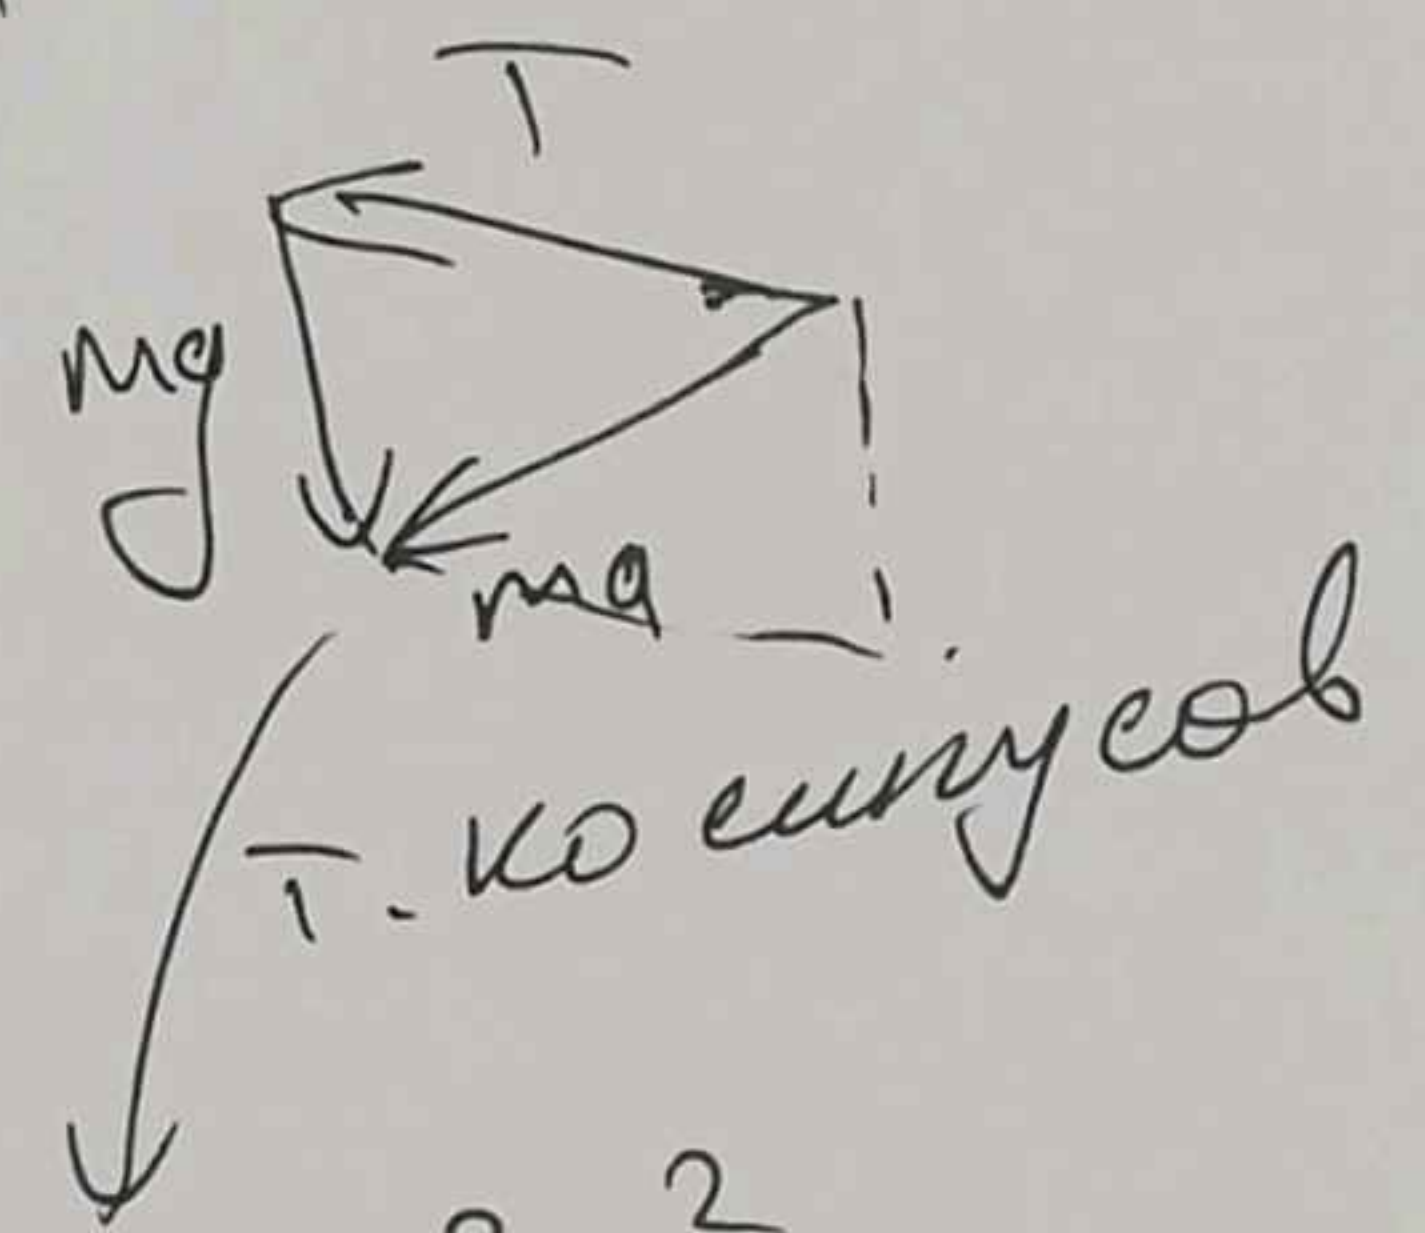 T
mg
ma
T. косинусов
2